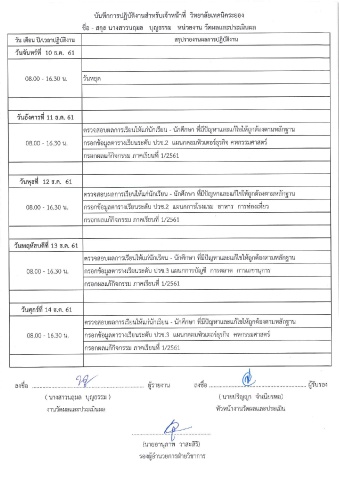 บันทึกการปฏิบัติงานสำหรับเจ้าหน้าที่ วิทยาลัยเทคนิคระยอง
ชื่อ - สกุล นางสาวนฤมล บุญธรรม หน่วยงาน วัดผลและประเมินผล
วัน เดือน ปี/เวลาปฏิบัติงาน สรุปรายงานผลการปฏิบัติงาน
วันจันทร์ที่ 10 ธ.ค. 61
08.00 - 16.30 น. วันหยุด
วันอังคารที่ 11 ธ.ค. 61
ตรวจสอบผลการเรียนให้แก่นักเรียน - นักศึกษา ที่มีปัญหาและแก้ไขให้ถูกต้องตามหลักฐาน
08.00 - 16.30 น. กรอกข้อมูลตารางเรียนระดับ ปวช.2 แผนกคอมพิวเตอร์ธุรกิจ คหกรรมศาสตร์
กรอกผลแก้กิจกรรม ภาคเรียนที่ 1/2561
วันพุธที่ 12 ธ.ค. 61
ตรวจสอบผลการเรียนให้แก่นักเรียน - นักศึกษา ที่มีปัญหาและแก้ไขให้ถูกต้องตามหลักฐาน
08.00 - 16.30 น. กรอกข้อมูลตารางเรียนระดับ ปวช.2 แผนกการโรงแรม อาหาร การท่องเที่ยว
กรอกผลแก้กิจกรรม ภาคเรียนที่ 1/2561
วันพฤหัสบดีที่ 13 ธ.ค. 61
ตรวจสอบผลการเรียนให้แก่นักเรียน - นักศึกษา ที่มีปัญหาและแก้ไขให้ถูกต้องตามหลักฐาน
08.00 - 16.30 น. กรอกข้อมูลตารางเรียนระดับ ปวช.3 แผนกการบัญชี การตลาด การเลขานุการ
กรอกผลแก้กิจกรรม ภาคเรียนที่ 1/2561
วันศุกร์ที่ 14 ธ.ค. 61
ตรวจสอบผลการเรียนให้แก่นักเรียน - นักศึกษา ที่มีปัญหาและแก้ไขให้ถูกต้องตามหลักฐาน
08.00 - 16.30 น. กรอกข้อมูลตารางเรียนระดับ ปวช.3 แผนกคอมพิวเตอร์ธุรกิจ คหกรรมศาสตร์
กรอกผลแก้กิจกรรม ภาคเรียนที่ 1/2561
ลงชื่อ ผู้รายงาน ลงชื่อ ผู้รับรอง
( นางสาวนฤมล บุญธรรม )
งานวัดผลและประเมินผล หัวหน้างานวัดผลและประเมิน
(นายอานุภาพ วาสะสิริ)
รองผู้อำนวยการฝ่ายวิชาการ